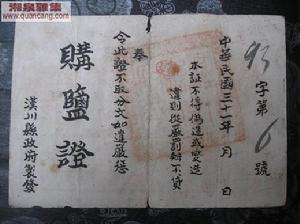 湘泉雅集
字第6號
中華民國三十一年 月 日
本証不得偽造或变造
違則從嚴罰辦不貸
奉
令此證不取分文如違嚴懲
購鹽證
漢川縣政府製發